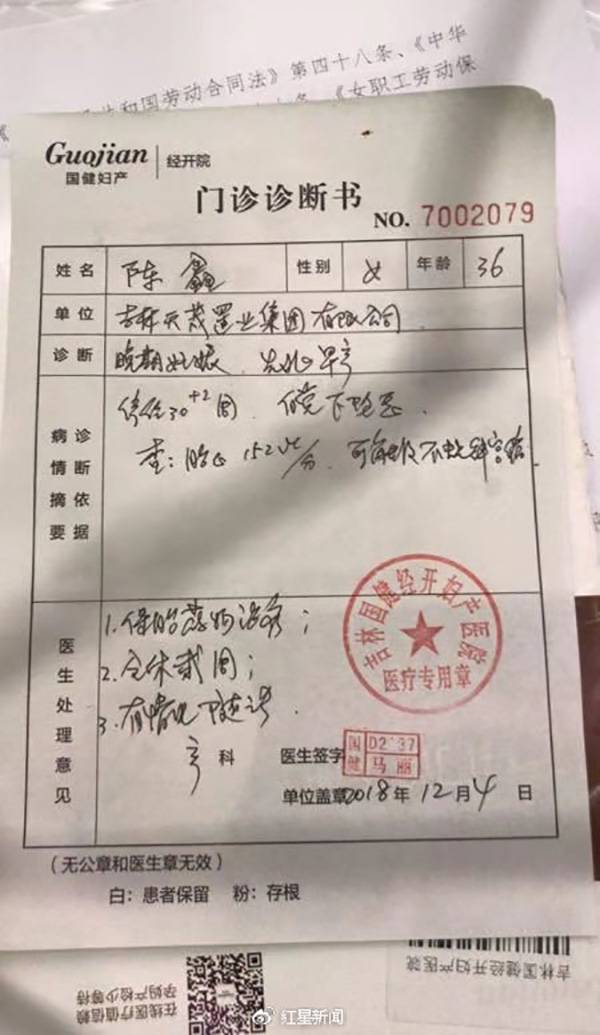 共和国劳动合同法》第四十八条、《中华
《女职工劳动保
Guojian
国健妇产
经开院
门诊诊断书
NO. 7002079
姓名 陈鑫 性别 女 年龄 36
单位 吉林天茂置业集团有限公司
诊断 晚期妊娠、先兆早产
病情摘要 诊断依据
停经30+2周
查:胎心152次/分
医生处理意见
1.保胎药物治疗;
2.全休贰周;
3.有情况随诊
产科 医生签字 国健 D2137 马丽
单位盖章 2018年12月4日
吉林国健经开妇产医院
医疗专用章
(无公章和医生章无效)
白:患者保留 粉:存根
在线医疗值信赖
孕妇产检少等待
吉林国健经开妇产医院
红星新闻